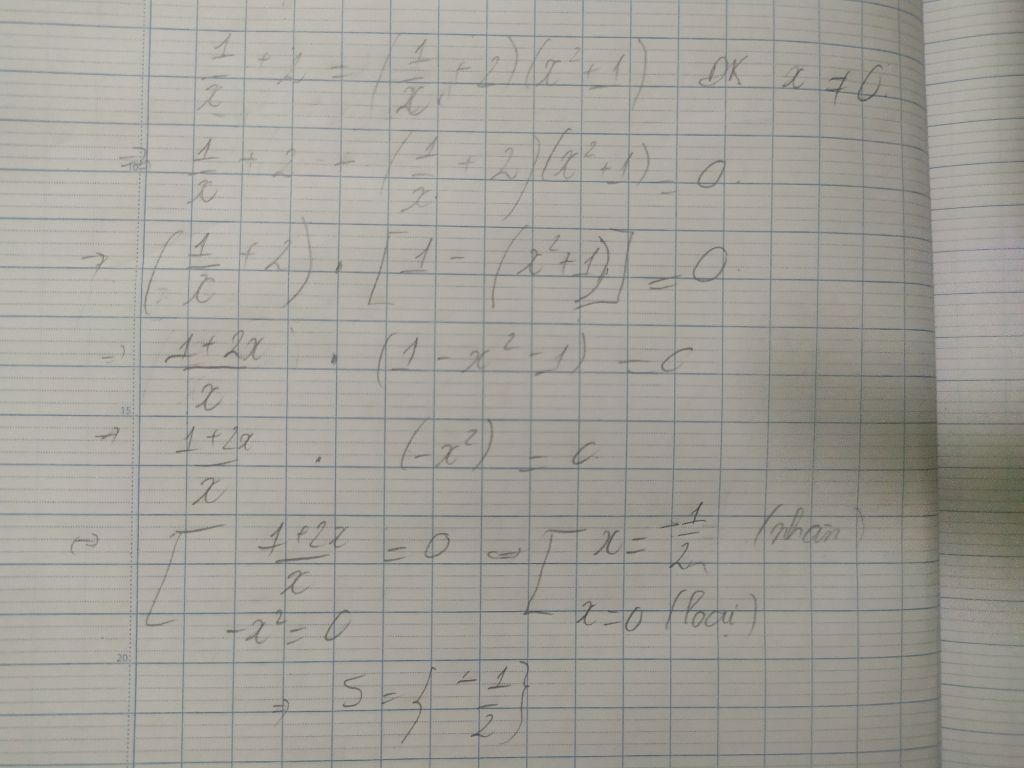 1/x + 2 = (1/x + 2)(x² + 1) ĐK x ≠ 0
⇔ 1/x + 2 - (1/x + 2)(x² + 1) = 0
⇔ (1/x + 2) . [1 - (x² + 1)] = 0
⇔ (1 + 2x)/x . (1 - x² - 1) = 0
⇔ (1 + 2x)/x . (-x²) = 0
⇔ [ (1 + 2x)/x = 0 ⇔ [ x = -1/2 (nhận)
-x² = 0 x = 0 (loại)
⇒ S = { -1/2 }
15
20